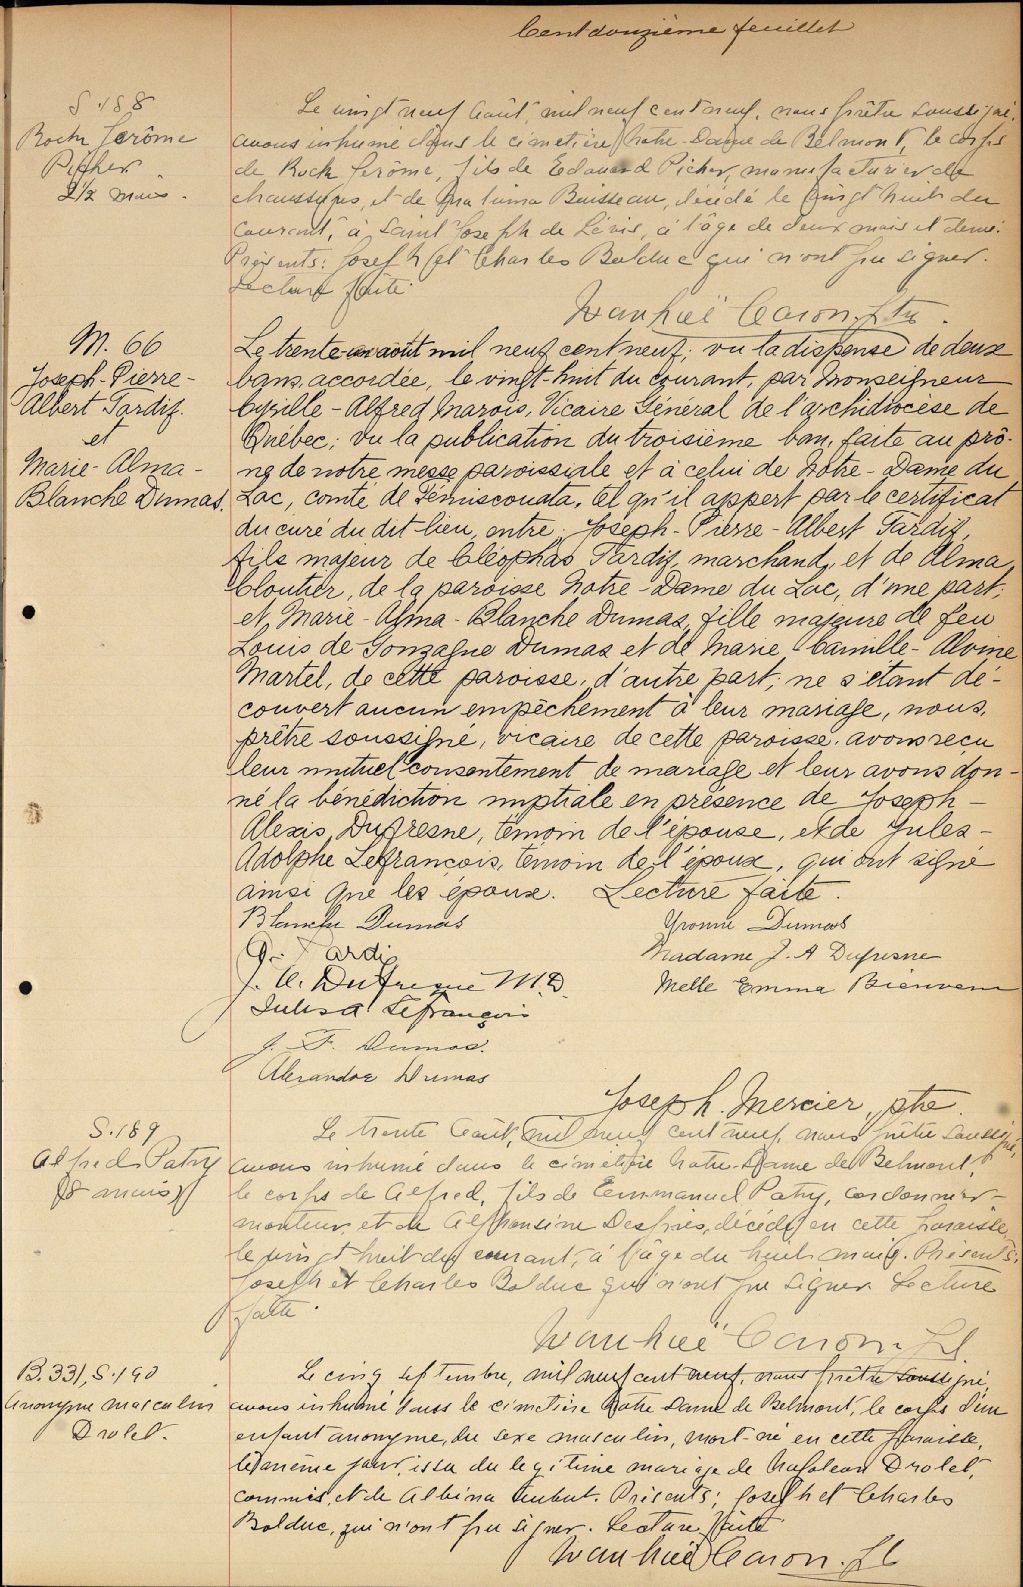 Cent douzième feuillet
S. 188
Roch Jérôme
Picher
2 1/2 mois.
Le vingt neuf Août, mil neuf cent neuf, nous prêtre soussigné,
avons inhumé dans le cimetière Notre-Dame de Belmont, le corps
de Roch Jérôme, fils de Edouard Picher, manufacturier de
chaussures, et de Boisseau, décédé le vingt huit du
courant, à Saint Joseph de Lévis, à l'âge de deux mois et demi.
Présents: Joseph et Charles Bolduc qui n'ont pu signer.
Lecture faite.
Caron, Ptre.
M. 66
Joseph-Pierre-
Albert Tardif.
et
Marie-Alma-
Blanche Dumas.
Le trente-un août mil neuf cent neuf; vu la dispense de deux
bans, accordée, le vingt-huit du courant, par Monseigneur
Cyrille-Alfred Marois, Vicaire Général de l'archidiocèse de
Québec; vu la publication du troisième ban, faite au prô-
ne de notre messe paroissiale et à celui de Notre-Dame du
Lac, comté de Témiscouata, tel qu'il appert par le certificat
du curé du dit lieu, entre Joseph-Pierre-Albert Tardif,
fils majeur de Cléophas Tardif, marchand, et de Alma
Cloutier, de la paroisse Notre-Dame du Lac, d'une part;
et, Marie-Alma-Blanche Dumas, fille majeure de feu
Louis de Gonzague Dumas et de Marie Camille-Alvine
Martel, de cette paroisse, d'autre part; ne s'étant dé-
couvert aucun empêchement à leur mariage, nous,
prêtre soussigné, vicaire de cette paroisse, avons reçu
leur mutuel consentement de mariage et leur avons don-
né la bénédiction nuptiale en présence de Joseph-
Alexis Dufresne, témoin de l'épouse, et de Jules-
Adolphe Lefrançois, témoin de l'époux, qui ont signé
ainsi que les époux. Lecture faite.
Blanche Dumas
Yvonne Dumas
Tardif
Madame J. A Dufresne
J. A. Dufresne M.D.
Melle Emma Bienvenu
Jules A Lefrançois
J. F. Dumas.
Alexandre Dumas
Joseph. Mercier, ptre.
S. 189
Alfred Patry
(8 mois)
Le trente Août, mil neuf cent neuf, nous prêtre soussigné,
avons inhumé dans le cimetière Notre-Dame de Belmont,
le corps de Alfred, fils de Emmanuel Patry, cordonnier-
monteur, et de Alphonsine Després, décédé en cette paroisse,
le vingt huit du courant, à l'âge du huit mois. Présents:
Joseph et Charles Bolduc qui n'ont pu signer. Lecture
faite.
Caron, Pt.
B. 331, S. 190
Anonyme masculin
Drolet.
Le cinq septembre, mil neuf cent neuf, nous prêtre soussigné,
avons inhumé dans le cimetière Notre Dame de Belmont, le corps d'un
enfant anonyme, du sexe masculin, mort-né en cette paroisse,
le même jour, issu du légitime mariage de Napoléon Drolet,
commis, et de Albina. Présents; Joseph et Charles
Bolduc, qui n'ont pu signer. Lecture faite
Caron. Pt